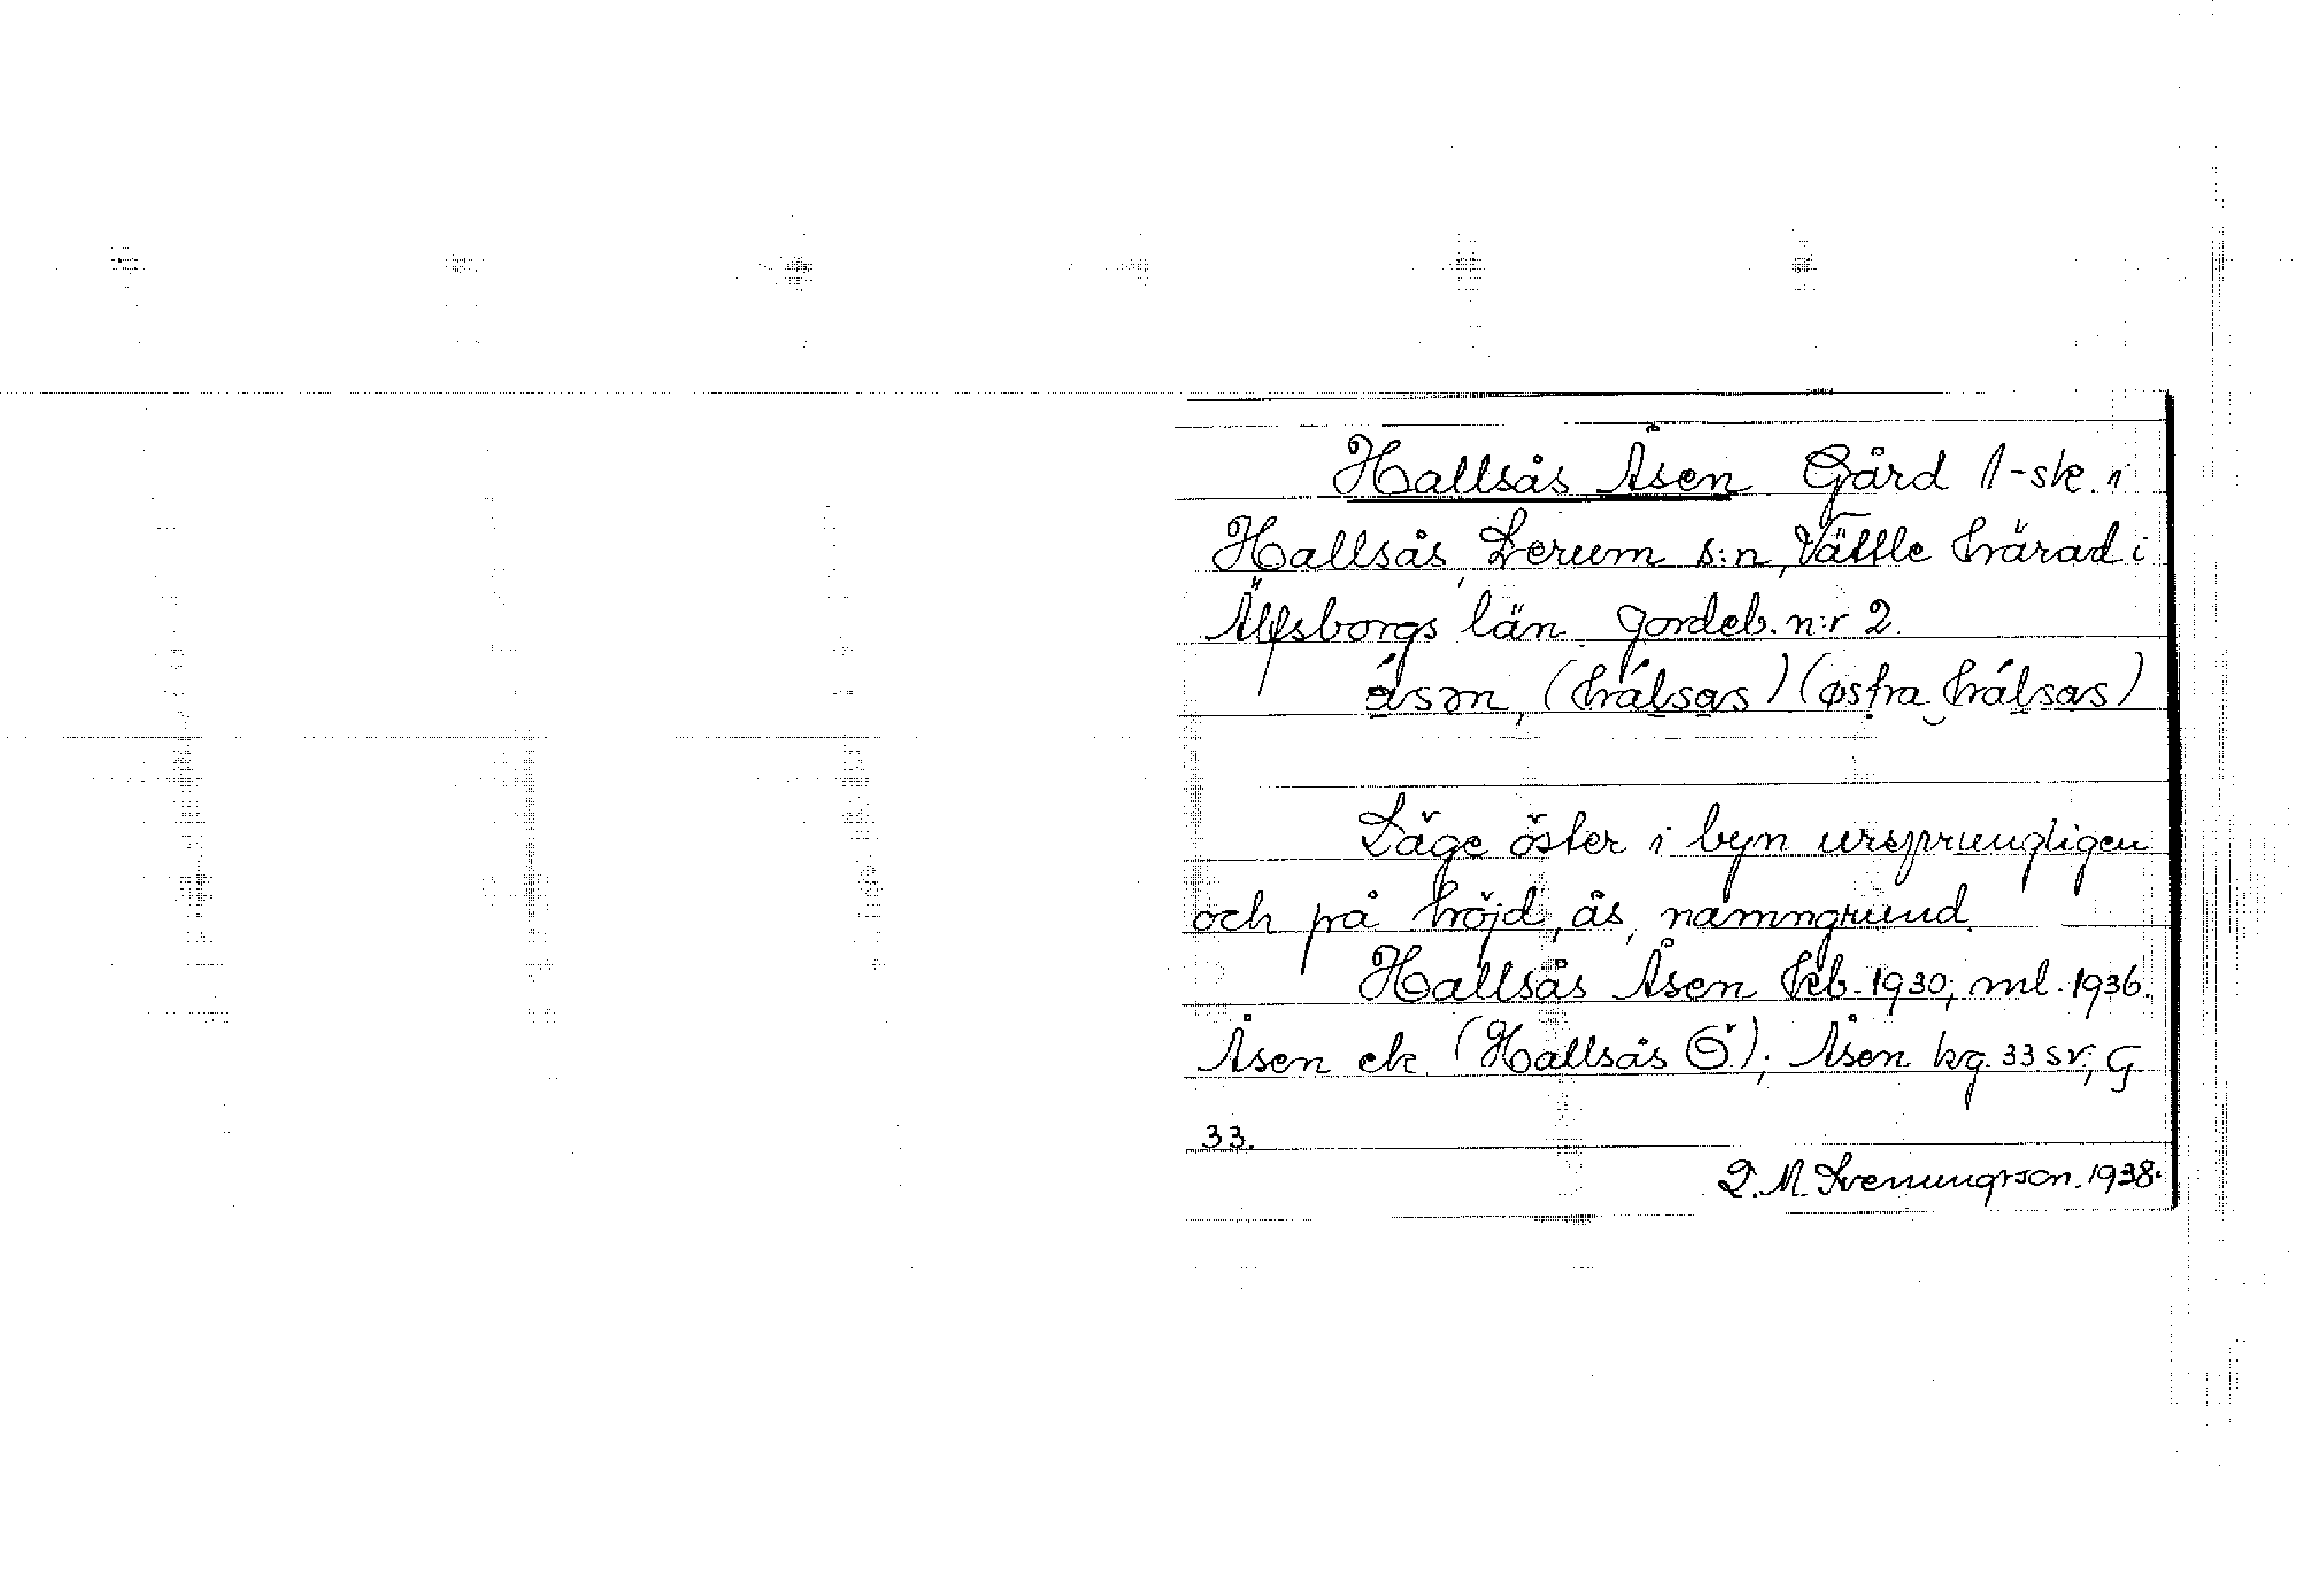 Hallsås Åsen. Gård 1-sk. i
Hallsås, Lerum s:n, Vättle härad i
Älfsborgs län. Jordeb. n:r 2.
ásən, (hálsas) (østra hálsas)
Läge öster i byn ursprungligen
och på höjd, ås, namngrund.
Hallsås Åsen kb. 1930; ml. 1936.
Åsen ek. (Hallsås Ö.); Åsen kg. 33 sv.; G
33.
Svenungsson. 1938.